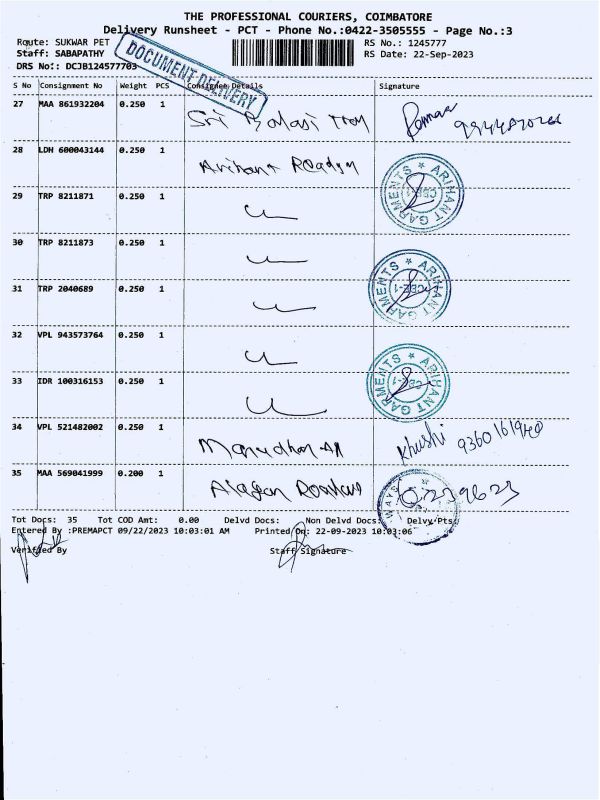 THE PROFESSIONAL COURIERS, COIMBATORE
Delivery Runsheet - PCT - Phone No.:0422-3505555 - Page No.:3
Route: SUKWAR PET
RS No.: 1245777
Staff: SABAPATHY
RS Date: 22-Sep-2023
DRS No:: DCJB124577703
DOCUMENT DELIVERY
S No Consignment No Weight PCS Consignee Details Signature
27 MAA 861932204 0.250 1 Sri Balaji
28 LDH 600043144 0.250 1 Arihant
ARIHANT GARMENTS CBE-1
29 TRP 8211871 0.250 1
30 TRP 8211873 0.250 1
31 TRP 2040689 0.250 1
ARIHANT GARMENTS CBE-1
32 VPL 943573764 0.250 1
33 IDR 100316153 0.250 1
ARIHANT GARMENTS CBE-1
34 VPL 521482002 0.250 1 Khushi
35 MAA 569041999 0.200 1
Tot Docs: 35 Tot COD Amt: 0.00 Delvd Docs: Non Delvd Docs: Delvy Pts:
Entered By :PREMAPCT 09/22/2023 10:03:01 AM Printed On: 22-09-2023 10:03:06
Verified By Staff Signature